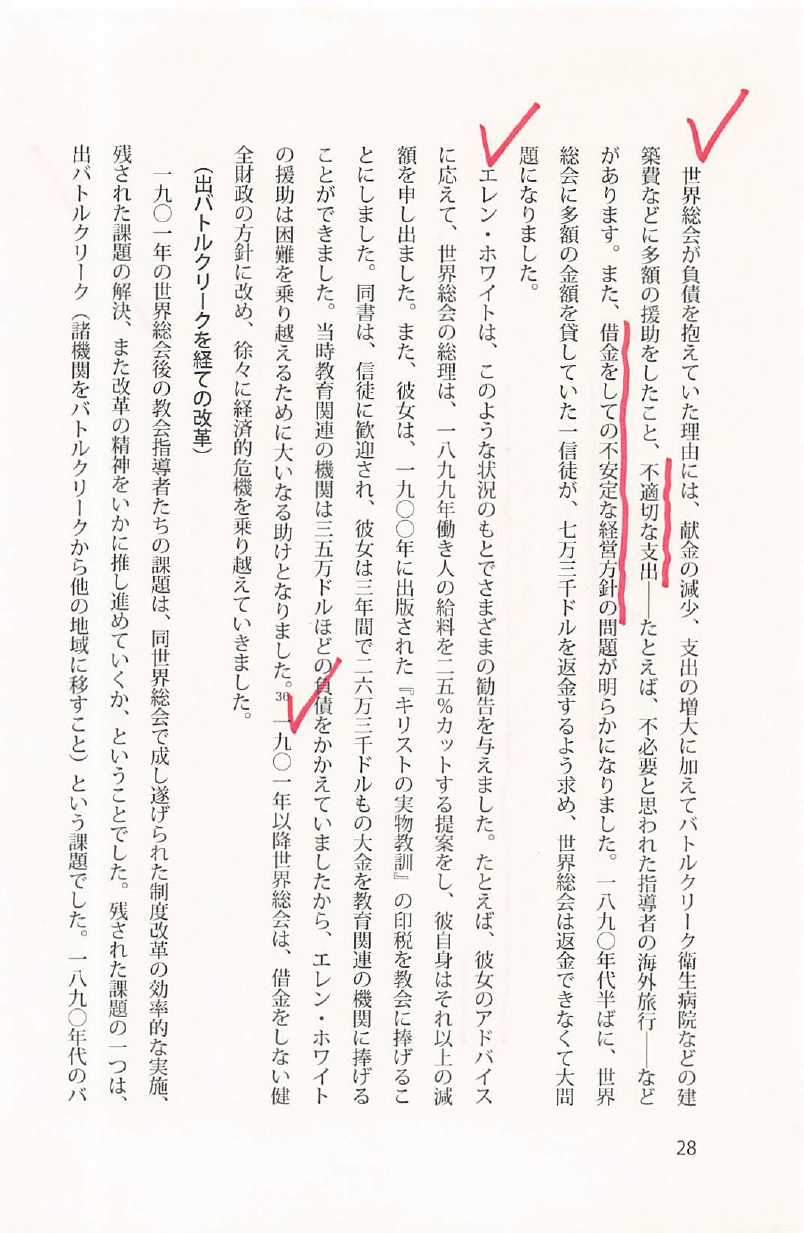 世界総会が負債を抱えていた理由には、献金の減少、支出の増大に加えてバトルクリーク衛生病院などの建
築費などに多額の援助をしたこと、不適切な支出――たとえば、不必要と思われた指導者の海外旅行――など
があります。また、借金をしての不安定な経営方針の問題が明らかになりました。一八九〇年代半ばに、世界
総会に多額の金額を貸していた一信徒が、七万三千ドルを返金するよう求め、世界総会は返金できなくて大問
題になりました。
エレン・ホワイトは、このような状況のもとでさまざまの勧告を与えました。たとえば、彼女のアドバイス
に応えて、世界総会の総理は、一八九九年働き人の給料を二五%カットする提案をし、彼自身はそれ以上の減
額を申し出ました。また、彼女は、一九〇〇年に出版された『キリストの実物教訓』の印税を教会に捧げるこ
とにしました。同書は、信徒に歓迎され、彼女は三年間で二六万三千ドルもの大金を教育関連の機関に捧げる
ことができました。当時教育関連の機関は三五万ドルほどの負債をかかえていましたから、エレン・ホワイト
の援助は困難を乗り越えるために大いなる助けとなりました。36 一九〇一年以降世界総会は、借金をしない健
全財政の方針に改め、徐々に経済的危機を乗り越えていきました。
(出バトルクリークを経ての改革)
一九〇一年の世界総会後の教会指導者たちの課題は、同世界総会で成し遂げられた制度改革の効率的な実施、
残された課題の解決、また改革の精神をいかに推し進めていくか、ということでした。残された課題の一つは、
出バトルクリーク(諸機関をバトルクリークから他の地域に移すこと)という課題でした。一八九〇年代のバ
28